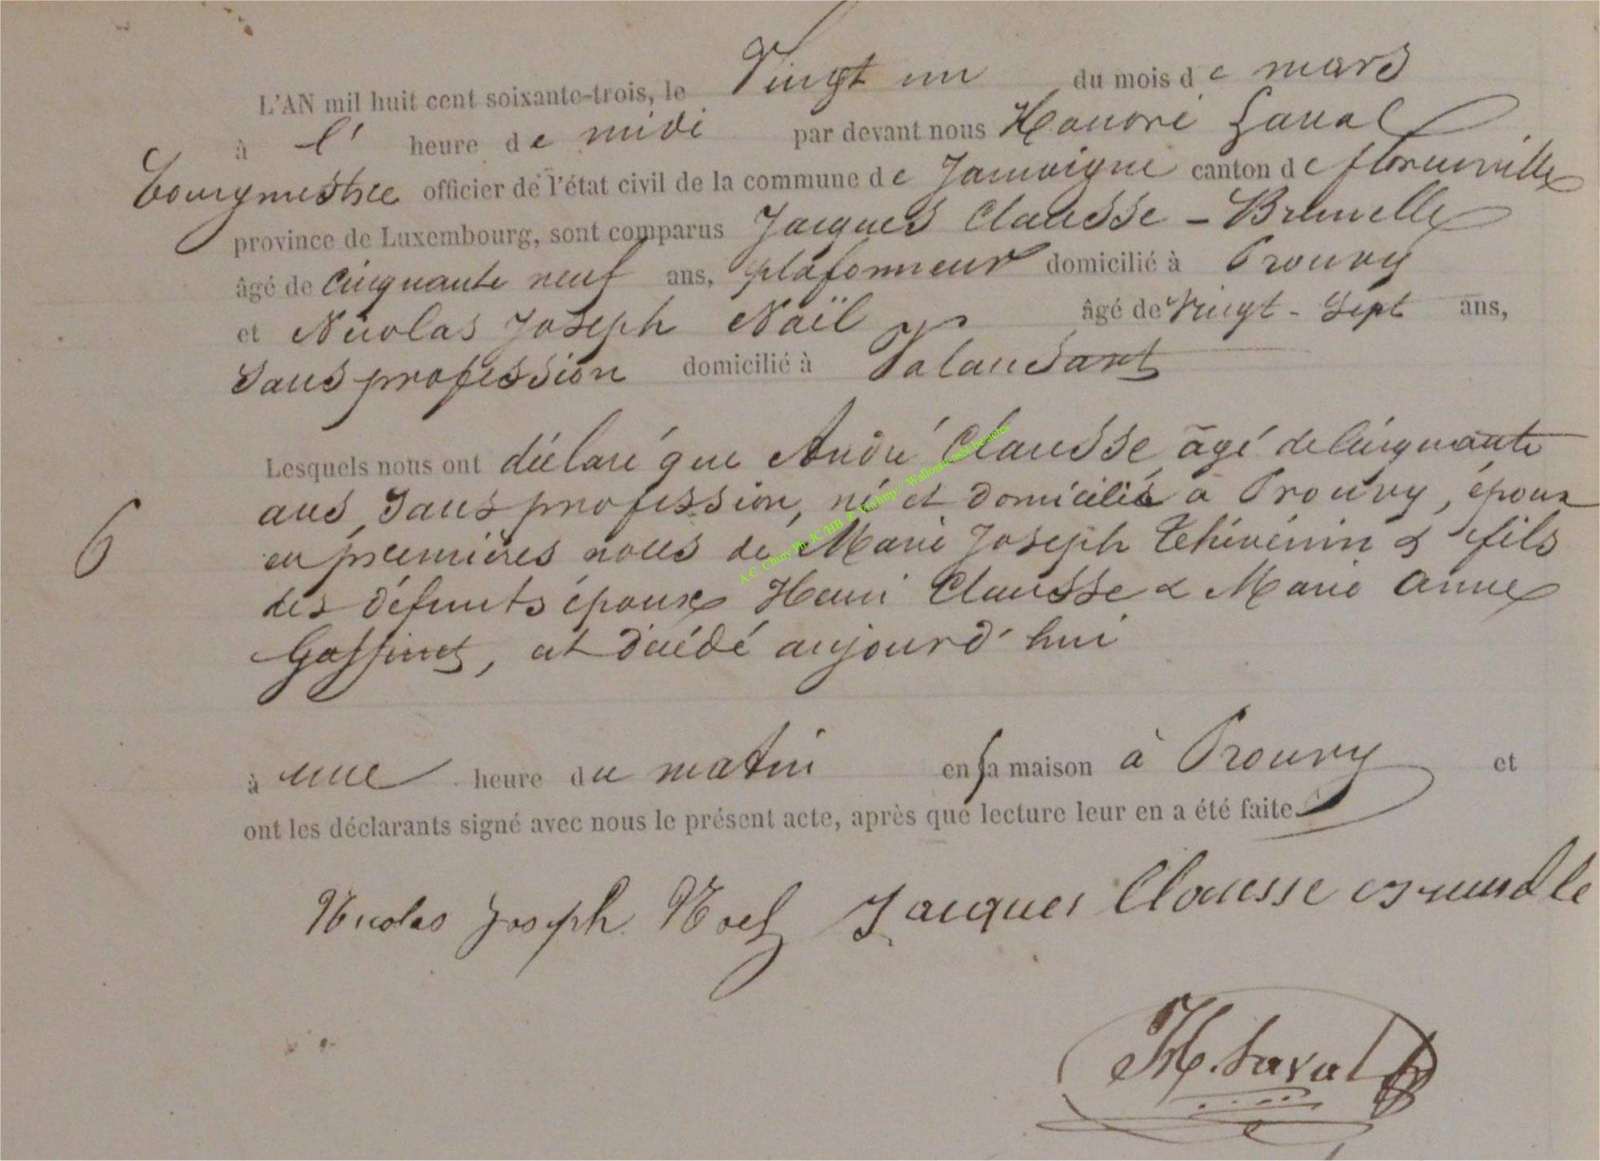 L'AN mil huit cent soixante-trois, le Vingt un du mois de mars
à l' heure de midi par devant nous Honoré Laval
bourgmestre officier de l'état civil de la commune de Jamoigne canton de florenville
province de Luxembourg, sont comparus Jacques Clausse - Brunelle
âgé de cinquante neuf ans, plafonneur domicilié à Prouvy
et Nicolas Joseph Noël âgé de Vingt-Sept ans,
Sans profession domicilié à Valansart
Lesquels nous ont déclaré que André Clausse âgé de cinquante
ans, Sans profession, né et domicilié à Prouvy, époux
en premières noces de Marie Joseph Thévenin & fils
des défunts époux Henri Clausse & Marie Anne
Goffinet, est décédé aujourd'hui
6
à une heure du matin en sa maison à Prouvy et
ont les déclarants signé avec nous le présent acte, après que lecture leur en a été faite.
Nicolas Joseph Noel Jacques Clausse Brunelle
H. Laval